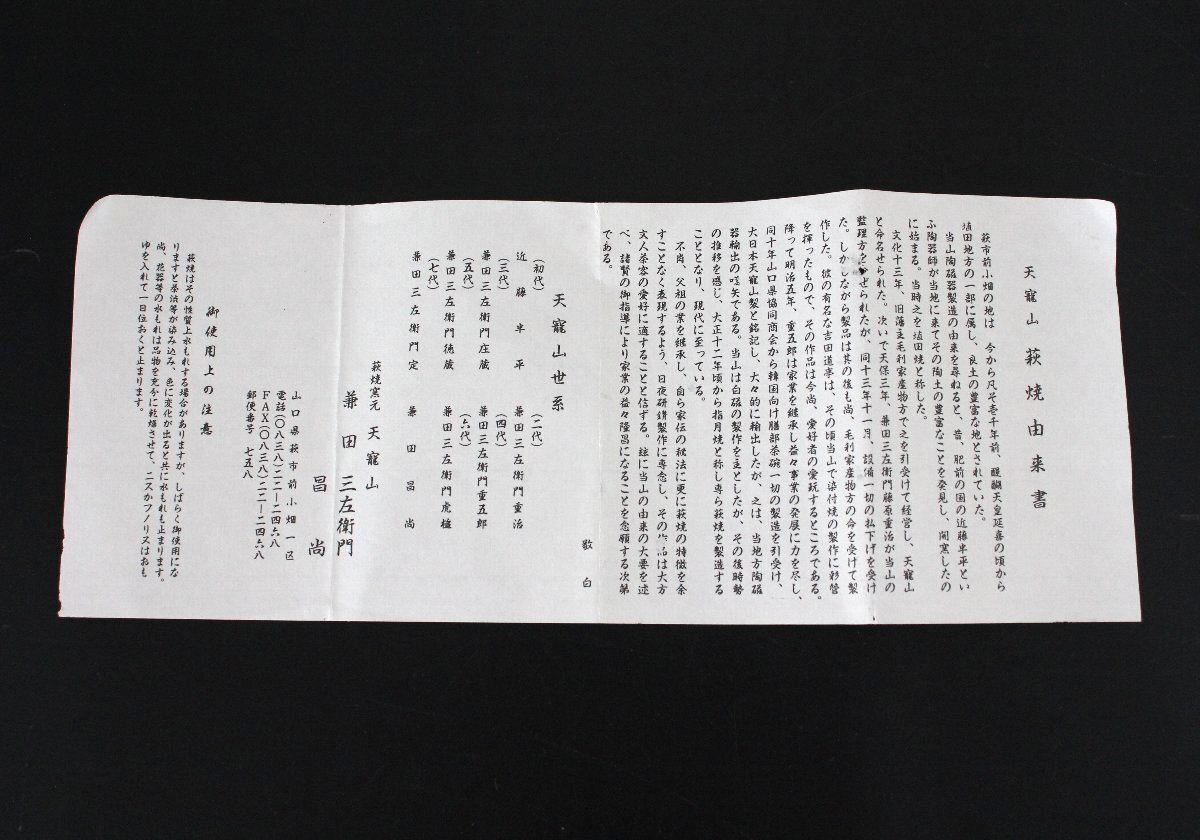 天寵山 萩焼由来書
萩市前小畑の地は 今から凡そ壱千年前、醍醐天皇延喜の頃から
埴田地方の一部に属し、良土の豊富な地とされていた。
当山陶磁器製造の由来を尋ねると、昔、肥前の国の近藤半平とい
ふ陶器師が当地に来てその陶土の豊富なことを発見し、開窯したの
に始まる。当時之を埴田焼と称した。
文化十三年、旧藩主毛利家産物方で之を引受けて経営し、天寵山
と命名せられた。次いで天保三年、兼田三左衛門藤原重治が当山の
監理方をせられたが、同十三年十一月、設備一切の払下げを受け
た。しかしながら製品は其の後も尚、毛利家産物方の命を受けて製
作した。彼の有名な吉田道亭は、その頃当山で染付焼の製作に彩管
を揮ったもので、その作品は今尚、愛好者の愛玩するところである。
降って明治五年、重五郎は家業を継承し益々事業の発展に力を尽し、
同十年山口県協同商会から韓国向け膳部茶碗一切の製造を引受け、
大日本天寵山製と銘記し、大々的に輸出したが、之は、当地方陶磁
器輸出の嚆矢である。当山は白磁の製作を主としたが、その後時勢
の推移を感じ、大正十二年頃から指月焼と称し専ら萩焼を製造する
こととなり、現代に至っている。
不肖、父祖の業を継承し、自ら家伝の秘法に更に萩焼の特徴を余
すことなく表現するよう、日夜研鑚製作に専念し、その作品は大方
文人茶客の愛好に適することと信ずる。玆に当山の由来の大要を述
べ、諸賢の御指導により家業の益々隆昌になることを念願する次第
である。
敬白
天寵山世系
(初代) (二代)
近藤半平 兼田三左衛門重治
(三代) (四代)
兼田三左衛門庄蔵 兼田三左衛門重五郎
(五代) (六代)
兼田三左衛門徳蔵 兼田三左衛門虎槌
(七代)
兼田三左衛門定 兼田昌尚
萩焼窯元 天寵山
兼田三左衛門
昌尚
山口県萩市前小畑一区
電話(〇八三八)二二ー二四六八
FAX(〇八三八)二二ー二四六八
郵便番号 七五八
御使用上の注意
萩焼はその性質上水もれする場合がありますが、しばらく御使用にな
りますと茶渋等が染み込み、色に変化が出ると共に水もれも止まります。
尚、花器等の水もれは品物を充分に乾燥させて、ニスかフノリ又はおも
ゆを入れて一日位おくと止まります。